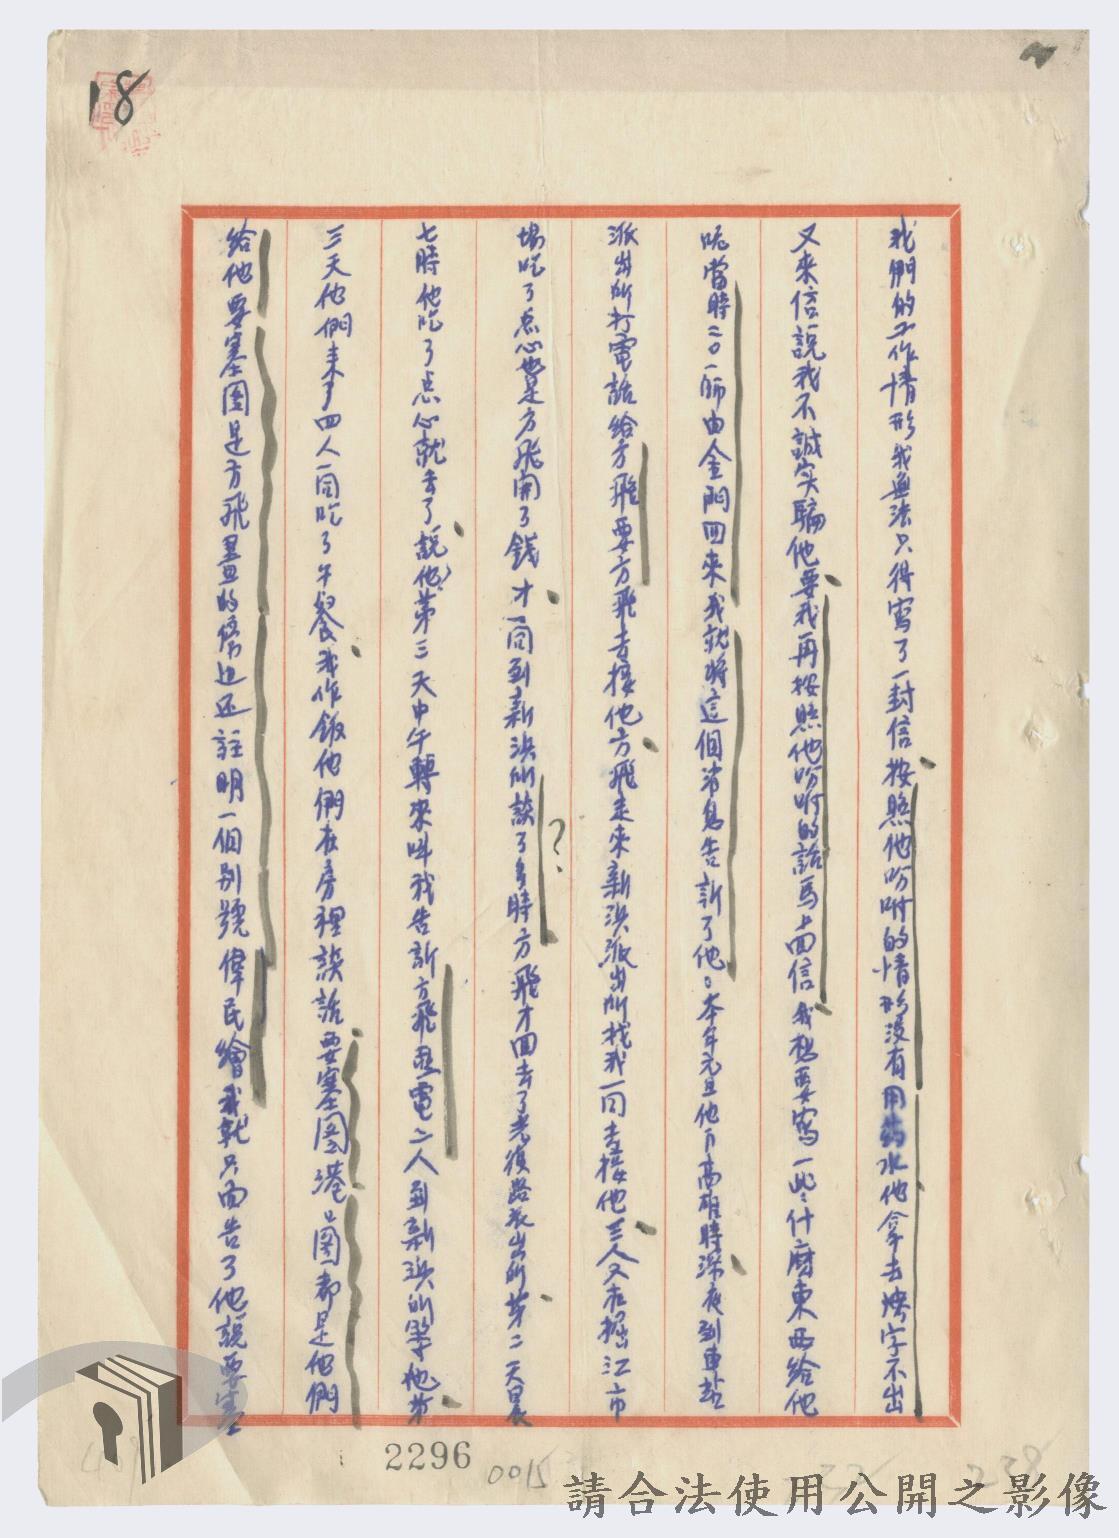 18
我們的工作情形我無法只得寫了一封信按照他吩咐的情形沒有用药水他拿去映字不出
又來信說我不誠实騙他要我再按照他吩咐的話馬上回信我想要寫一些什麼東西給他
呢當時二〇一師由金門回來我就將這個消息告訴了他。本年元旦他下高雄時深夜到車站
派出所打電話給方飛要方飛去接他方飛走來新浜派出所找我一同去接他三人又在掘江市
場吃了点心也是方飛開了錢才一同到新浜所談了多時方飛才回去了光復路派出所第二天晨
七時他吃了点心就去了說他第三天中午轉來叫我告訴方飛惠電二人到新浜所等他第
三天他們來了四人一同吃了午餐我作飯他們在房裡談話要塞圖港口圖都是他們
給他要塞圖是方飛畫的傍边还註明一個別號偉民繪我就只面告了他說要塞
?
2296
0015
238
請合法使用公開之影像